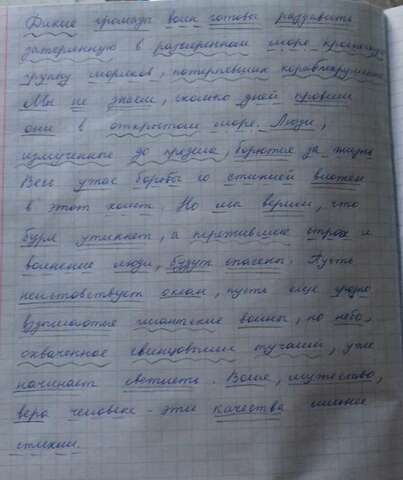 Дикие громады волн готовы раздавить
затерянную в разъяренном море крошечную
группу моряков, потерпевших кораблекрушение.
Мы не знаем, сколько дней провели
они в открытом море. Люди,
измученные до предела, борются за жизнь
Весь ужас борьбы со стихией вложен
в этот холст. Но мы верим, что
буря утихнет, а пережившие страх и
волнение люди, будут спасены. Пусть
неистовствует океан, пусть еще грозно
вздымаются гигантские волны, но небо,
охваченное свинцовыми тучами, уже
начинает светлеть. Воля, мужество,
вера человека - эти качества сильнее
стихии.